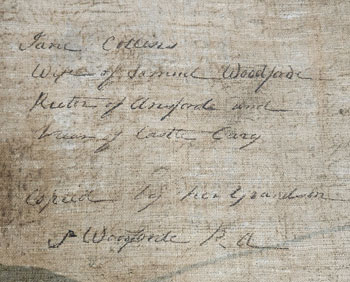 Jane Collins
Wife of Samuel Woodforde
Rector of Ansforde and
of Castle Cary
copied by her Grandson
S Woodforde R A